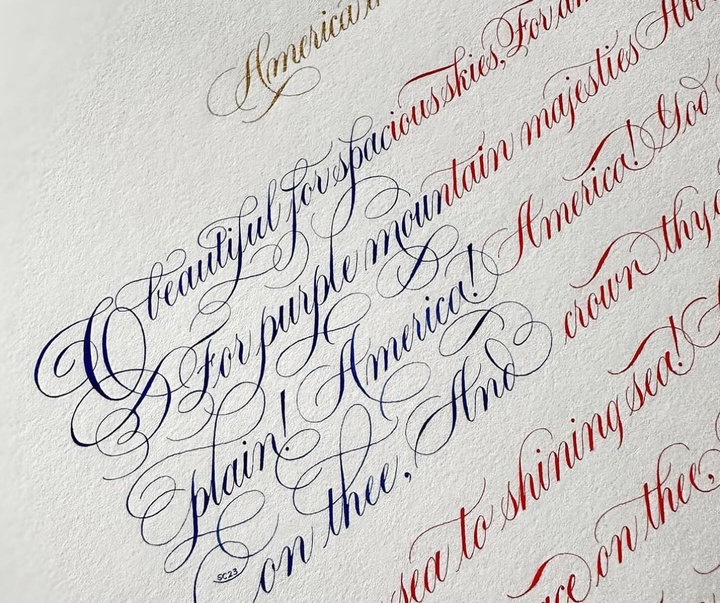 America
O beautiful for spacious skies, For
For purple mountain majesties
plain! America! America! God
on thee, And crown thy
sea to shining sea!
on thee,
SC23